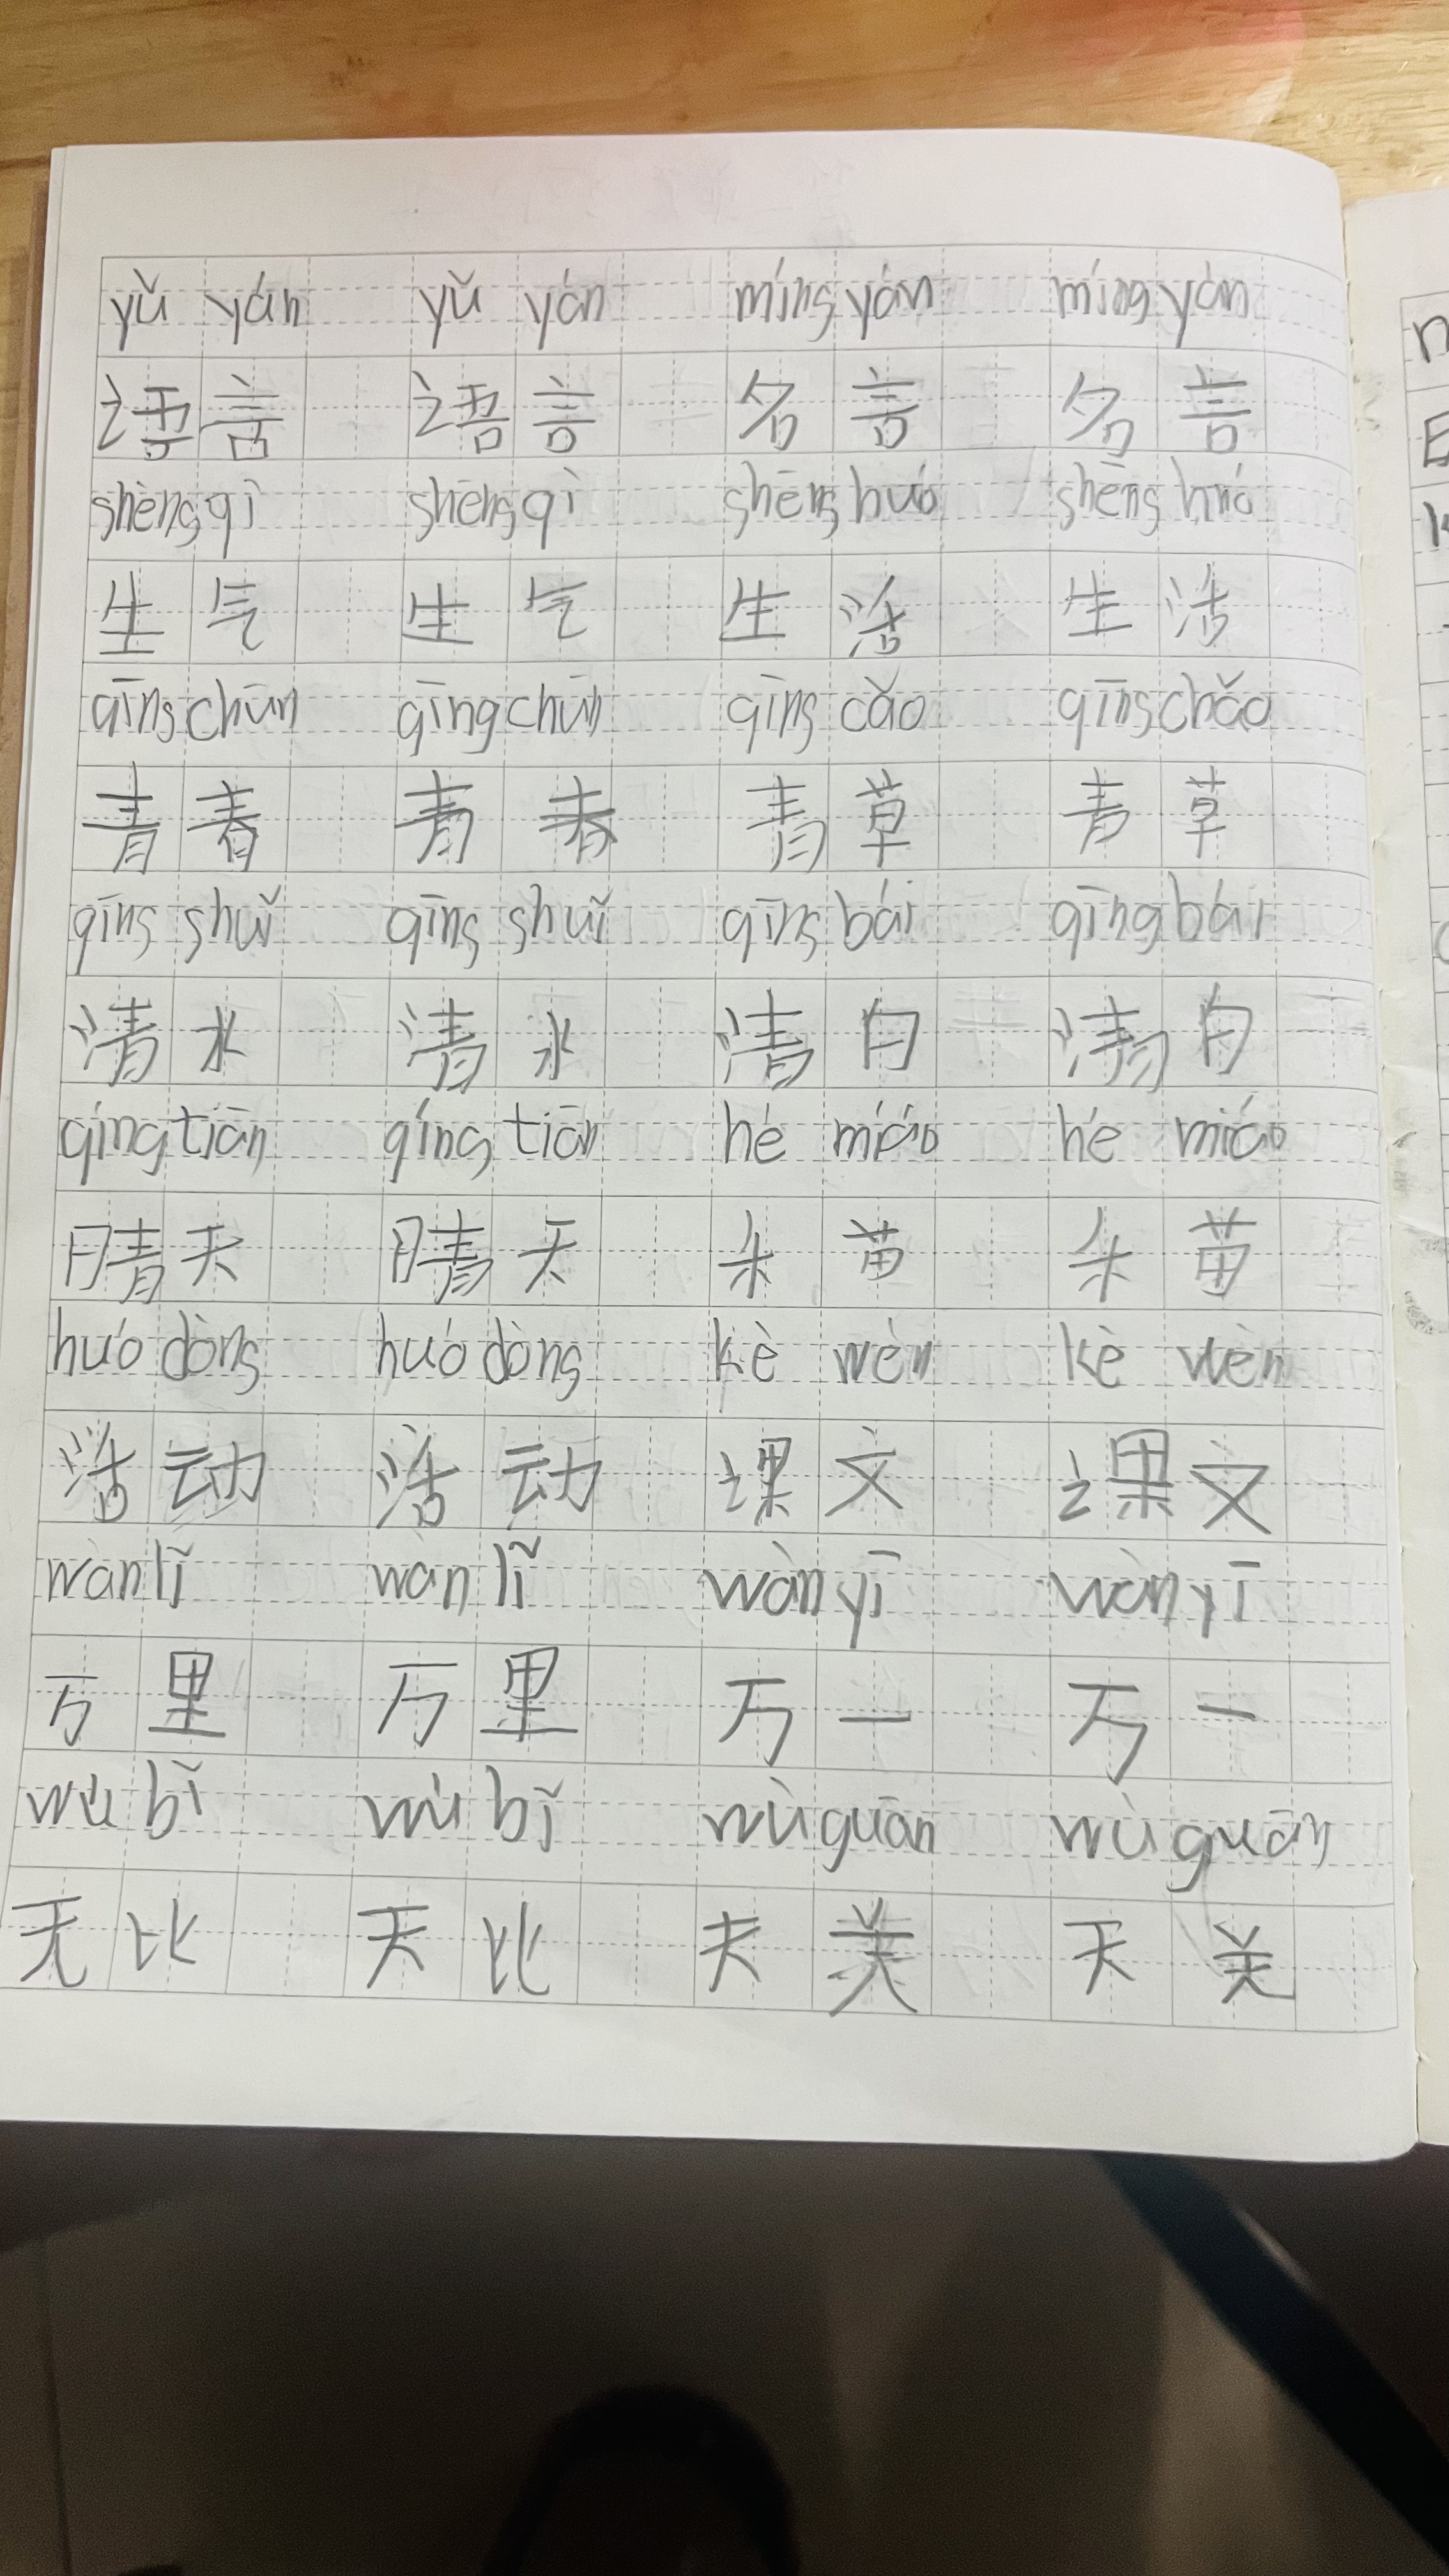 yǔ yán yǔ yán míng yán míng yán
语言 语言 名言 名言
shēng qì shēng qì shēng huó shēng huó
生气 生气 生活 生活
qīng chūn qīng chūn qīng cǎo qīng chǎo
青春 青春 青草 青草
qīng shuǐ qīng shuǐ qīng bái qīng bái
清水 清水 清白 清白
qíng tiān qíng tiān hé miáo hé miáo
晴天 晴天 禾苗 禾苗
huó dòng huó dòng kè wèn kè wèn
活动 活动 课文 课文
wàn lǐ wàn lǐ wàn yī wàn yī
万里 万里 万一 万一
wú bǐ wú bǐ wù guān wù guān
无比 天比 夫美 天关